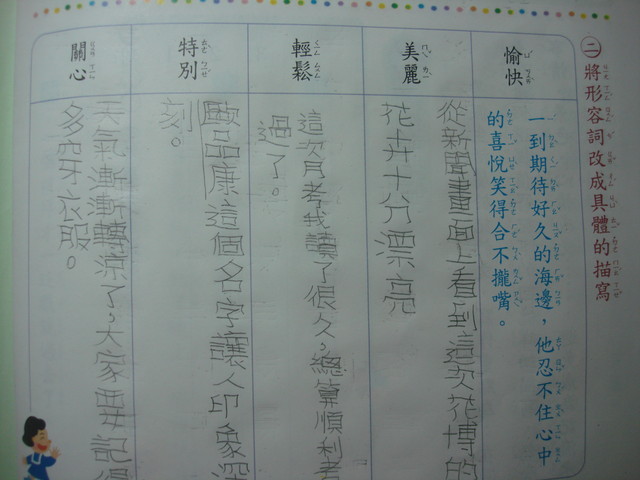 ㈡將形容詞改成具體的描寫
愉快
一到期待好久的海邊，他忍不住心中
的喜悅笑得合不攏嘴。
美麗
從新聞畫面上看到這次花博的
花卉十分漂亮
輕鬆
這次月考我讀了很久，總算順利考
過了。
特別
歐品康這個名字讓人印象深
刻。
關心
天氣漸漸轉涼了，大家要記得
多穿衣服。